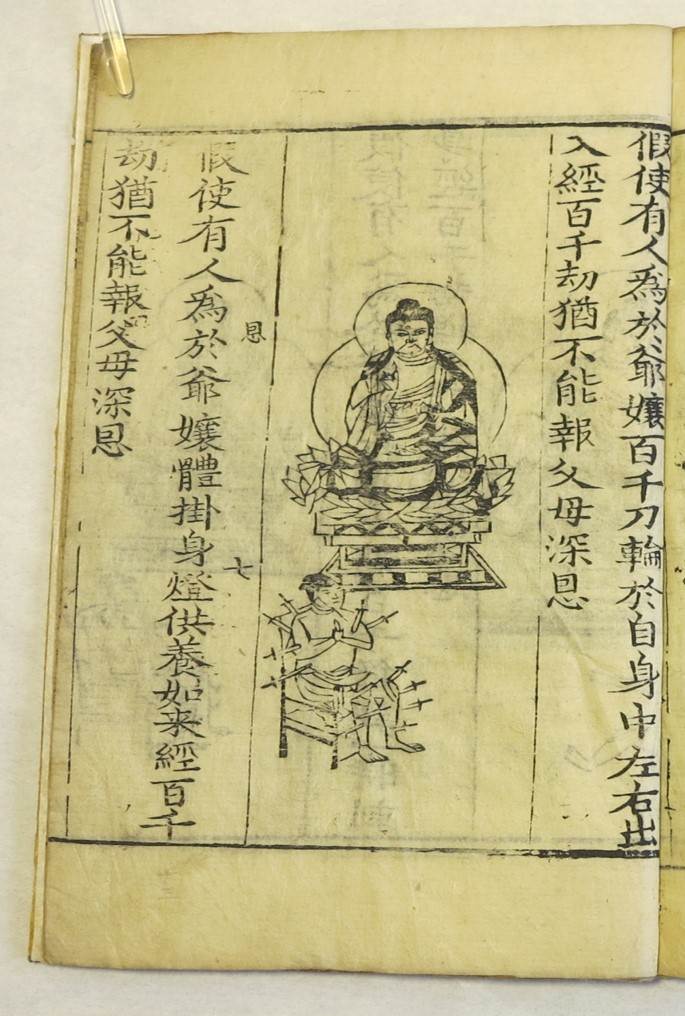 假使有人爲於爺孃百千刀輪於自身中左右出
入經百千劫猶不能報父母深恩
恩
七
假使有人爲於爺孃體掛身燈供養如来經百千
劫猶不能報父母深恩